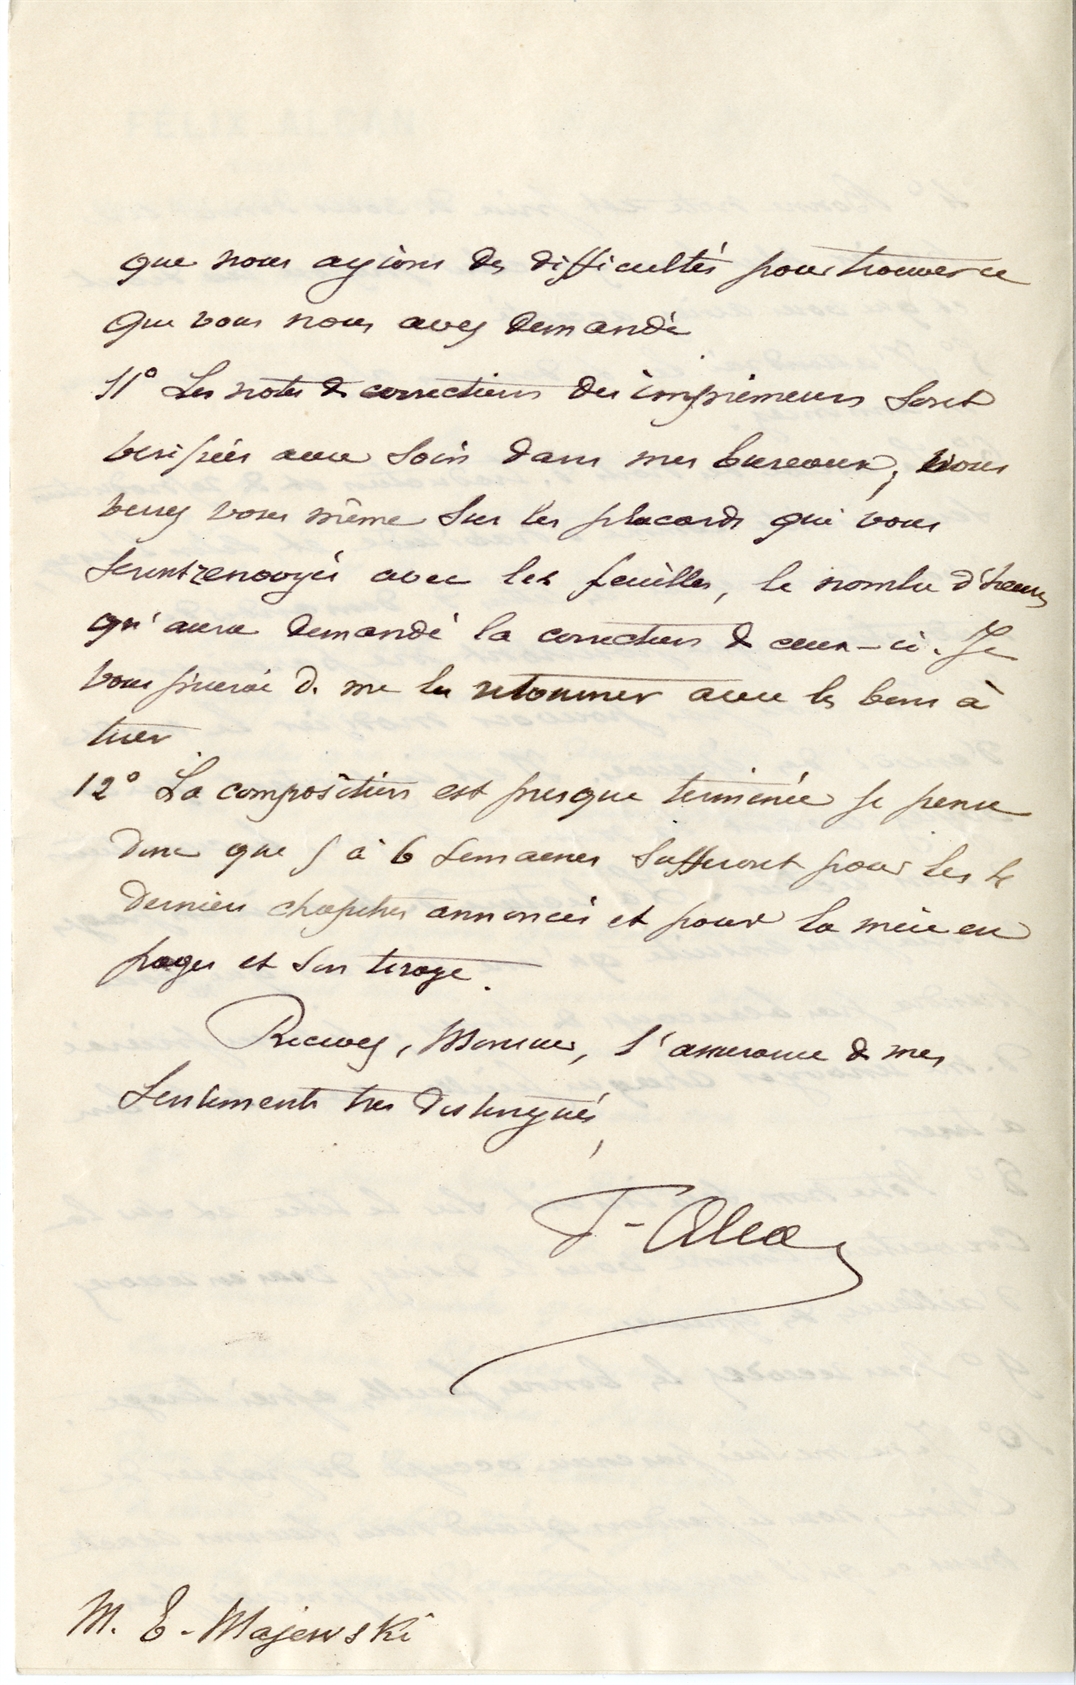 que nous ayions des difficultés pour trouver ce
que vous nous avez demandé
11° Les notes de corrections des imprimeurs sont
verifiées avec soin dans mes bureaux, vous
verrez vous même sur les placards qui vous
seront renvoyés avec les feuilles, le nombre d'heures
qu'aura demandé la correction de ceux-ci. Je
vous prierai de me les retourner avec les bons à
tirer
12° La composition est presque terminée je pense
donc que 5 à 6 semaines suffiront pour les
derniers chapitres annoncés et pour la mise en
pages et son tirage.
Recevez, Monsieur, l'assurance de mes
sentiments tres distingués,
F-Alcan
M. E-Majewski